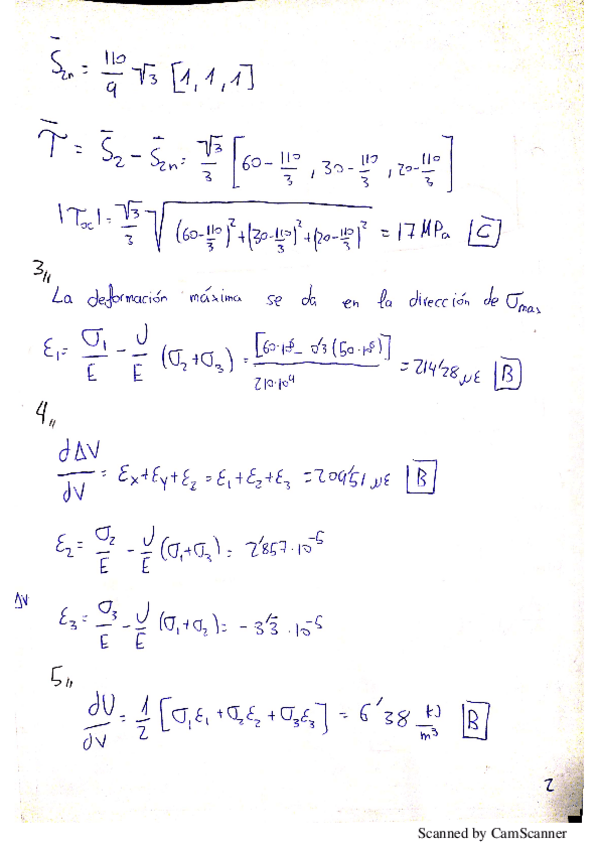 S̄₂ₙ = 110/9 √3 [1, 1, 1]
T̄ = S̄₂ - S̄₂ₙ = √3/3 [60 - 110/3 , 30 - 110/3 , 20 - 110/3]
|Toc| = √3/3 √((60 - 110/3)² + (30 - 110/3)² + (20 - 110/3)²) = 17 MPa [C]
3,,
La deformación máxima se da en la dirección de σmax
ε₁ = σ₁/E - ν/E (σ₂+σ₃) = [60·10⁶ - 0'3(50·10⁶)] / 210·10⁹ = 214'28 με [B]
4,,
dΔV/dV = εx + εy + εz = ε₁ + ε₂ + ε₃ = 209'51 με [B]
ε₂ = σ₂/E - ν/E (σ₁+σ₃) = 2'857·10⁻⁵
ΔV
ε₃ = σ₃/E - ν/E (σ₁+σ₂) = -3'3̄·10⁻⁵
5,,
dU/dV = 1/2 [σ₁ε₁ + σ₂ε₂ + σ₃ε₃] = 6'38 kJ/m³ [B]
2
Scanned by CamScanner